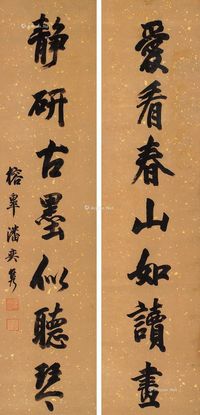 愛看春山如讀畫
靜研古墨似聽琴
榕皋潘奕雋